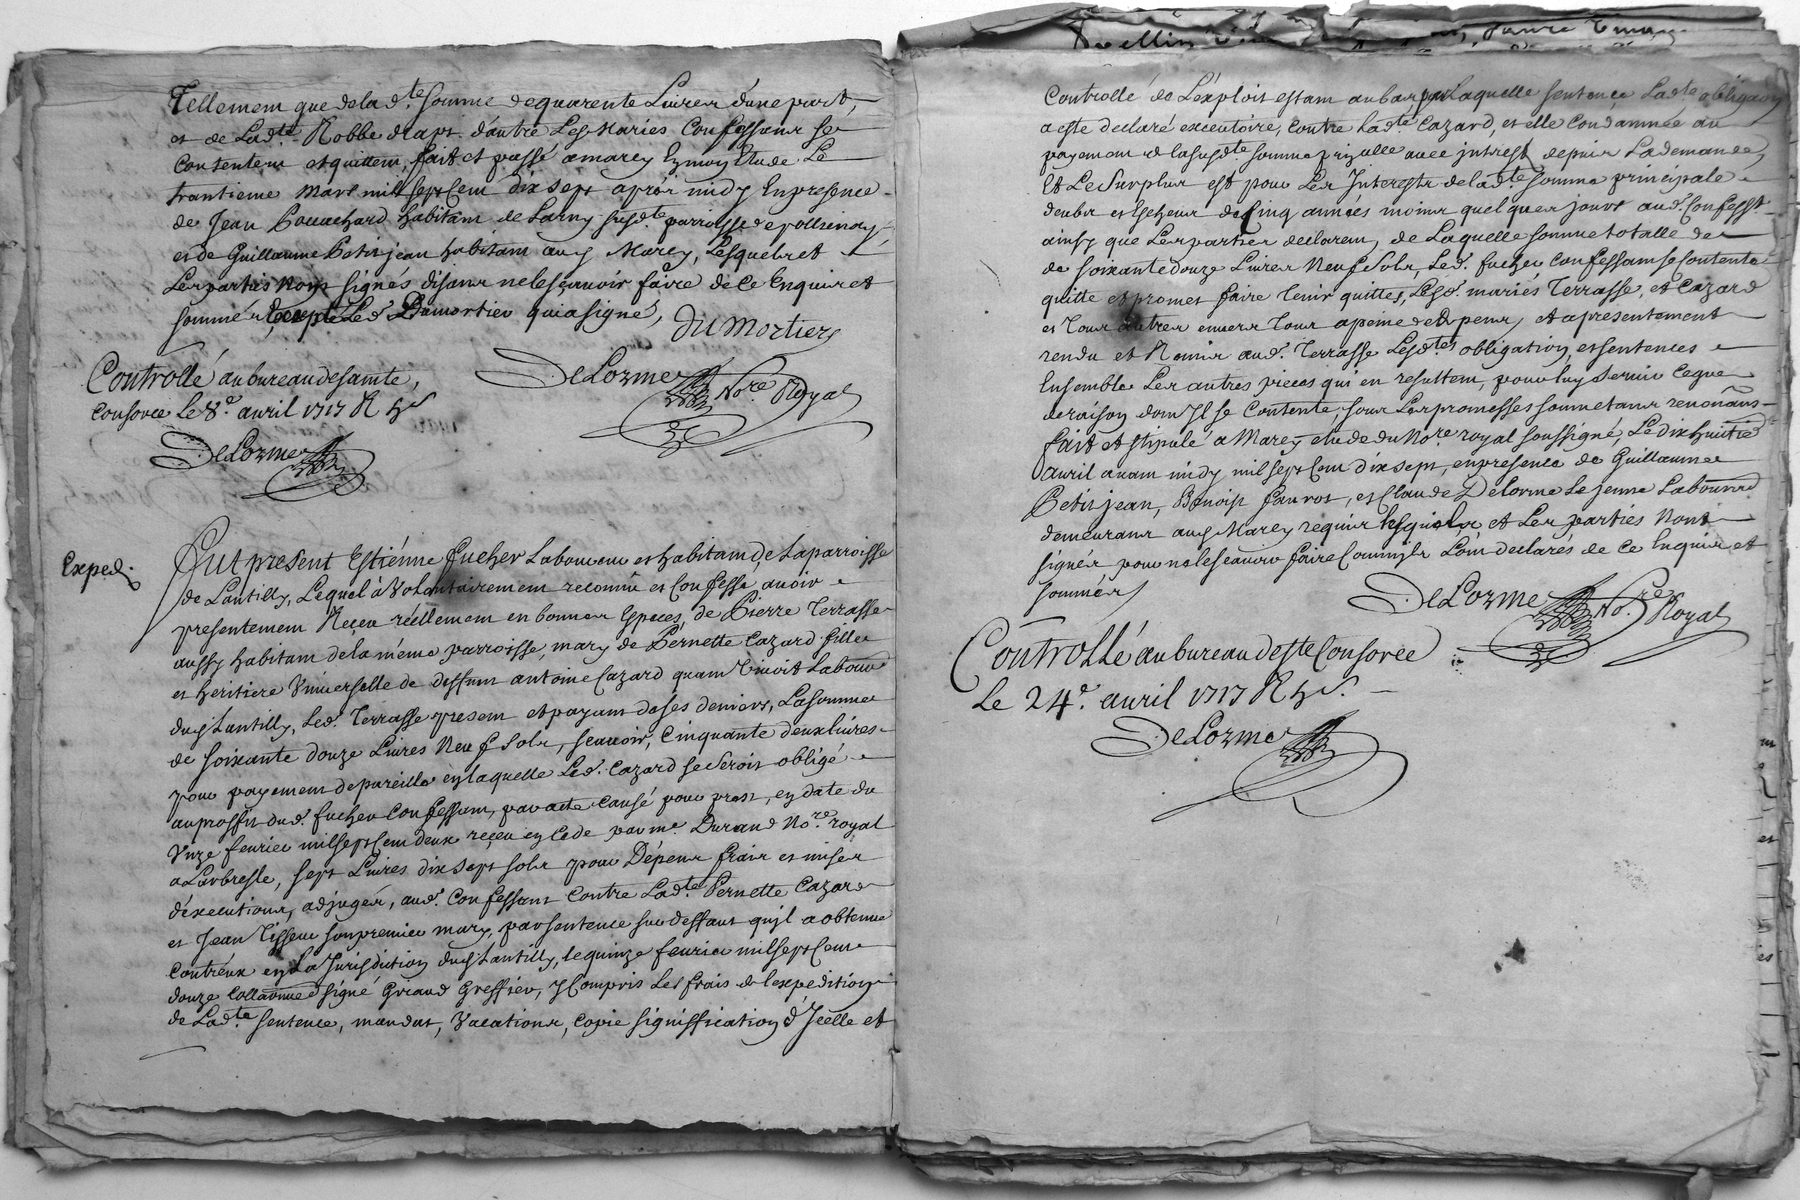 Tellement que de lad.te somme de quarente Livres d'une part,
et de Lad.te Robbe drap d'autre Les Maries Confessans se
Contentent et quittent, fait et passé a marcy En mon Etude Le
trantieme mars mil sept Cent dix sept apres midy En presence
de Jean Bouuchard habitant de Larny susd.te parroisse de pollienay
et de Guillaume Petit jean habitant aud. Marcy, Lesquels et
Les parties Nont signés disans ne le sçauoir faire de Ce Enquis et
sommés Excepté Led. Dumortier qui a signé,
Du Mortier
Controllé au bureau de sainte
Consorce le 8.e auril 1717 R
DeLorme No.re Royal
DeLorme
Exped.
Fut present Estiénne fucher Laboureur et habitant, de La parroisse
de Lantilly, Lequel à Volontairement reconnu et Confessé auoir
presentement Reçeu réellement en bonnes Espeçes, de Pierre Terrasse
aussy habitant de la méme parroisse, mary de Pernette Cazard fille
et heritiere Vniverselle de deffunt antoine Cazard quant Viuoit Laboureur
dud. Lantilly, Led. Terrasse present et payant de sés deniers, La somme
de soixante douze Livres Neuf Sols, scauoir, Cinquante deux livres
pour payement de pareille en laquelle Led. Cazard se Seroit obligé
au proffit dud. fucher Confessant, par acte Causé pour prest, en date du
Vnze feurier mil sept Cent deux reçeu en Cede par me. Durand No.re royal
a Larbresle, sept Livres dix sept sols pour Dépens frais et mises
d'éxecutions, adjugés, aud. Confessant Contre Lad.te Pernette Cazard
et Jean Tisseur son premier mary, par sentence sur deffaut qu'jl a obtenue
Contréux en La Jurisdiction dud. Lantilly, le quinze feurier mil sept Cent
douze Collationnée signé Griaud Greffier, y Compris Les frais de l'expedition
de Lad.te sentence, mandat, Vacations, Copie signiffication d'Jcelle et
Controlle de L'exploit estant au bas par Laquelle sentence Lad.te obligation
a esté declaré executoire, Contre Lad.te Cazard, et elle Condamnée au
payement de la susd.te somme prinalle auec jntrest depuis La demande,
Et Le Surplus est pour Les Jnterests de lad.te somme principale
deubs et Escheus de Cinq années moins quelques jours aud. Confess.t
ainsy que Les parties declarent, de Laquelle somme totalle de
de soixante douze Livres Neuf Sols, Led. fucher Confessant se Contente
quitte et promet faire tenir quittes, Lesd. mariés Terrasse, et Cazard
et Tous autres enuers Tous a peine de Dépens, et a presentement
rendu et Remis aud. Terrasse Lesd.tes obligation, et sentences
Ensemble Les autres pieces qui en resultent, pour luy Seruir Ce que
de raison dont Jl se Contente, sous Les promesses soumetans renonçans
fait et stipulé a Marcy etude du No.re royal soussigné, Le dix huitie
auril auant midy mil sept Cent dix sept, en presence de Guillaume
Petit jean, Benoist fauros, et Claude Delorme Le jeune Laboureurs
demeurans aud. Marcy requis Lesquels et Les parties Nont
signés pour ne le scauoir faire Comm'jls L'ont declarés de Ce Enquis et
sommés
DeLorme No.re Royal
Controllé au bureau de ste Consorce
Le 24.e auril 1717 R
DeLorme